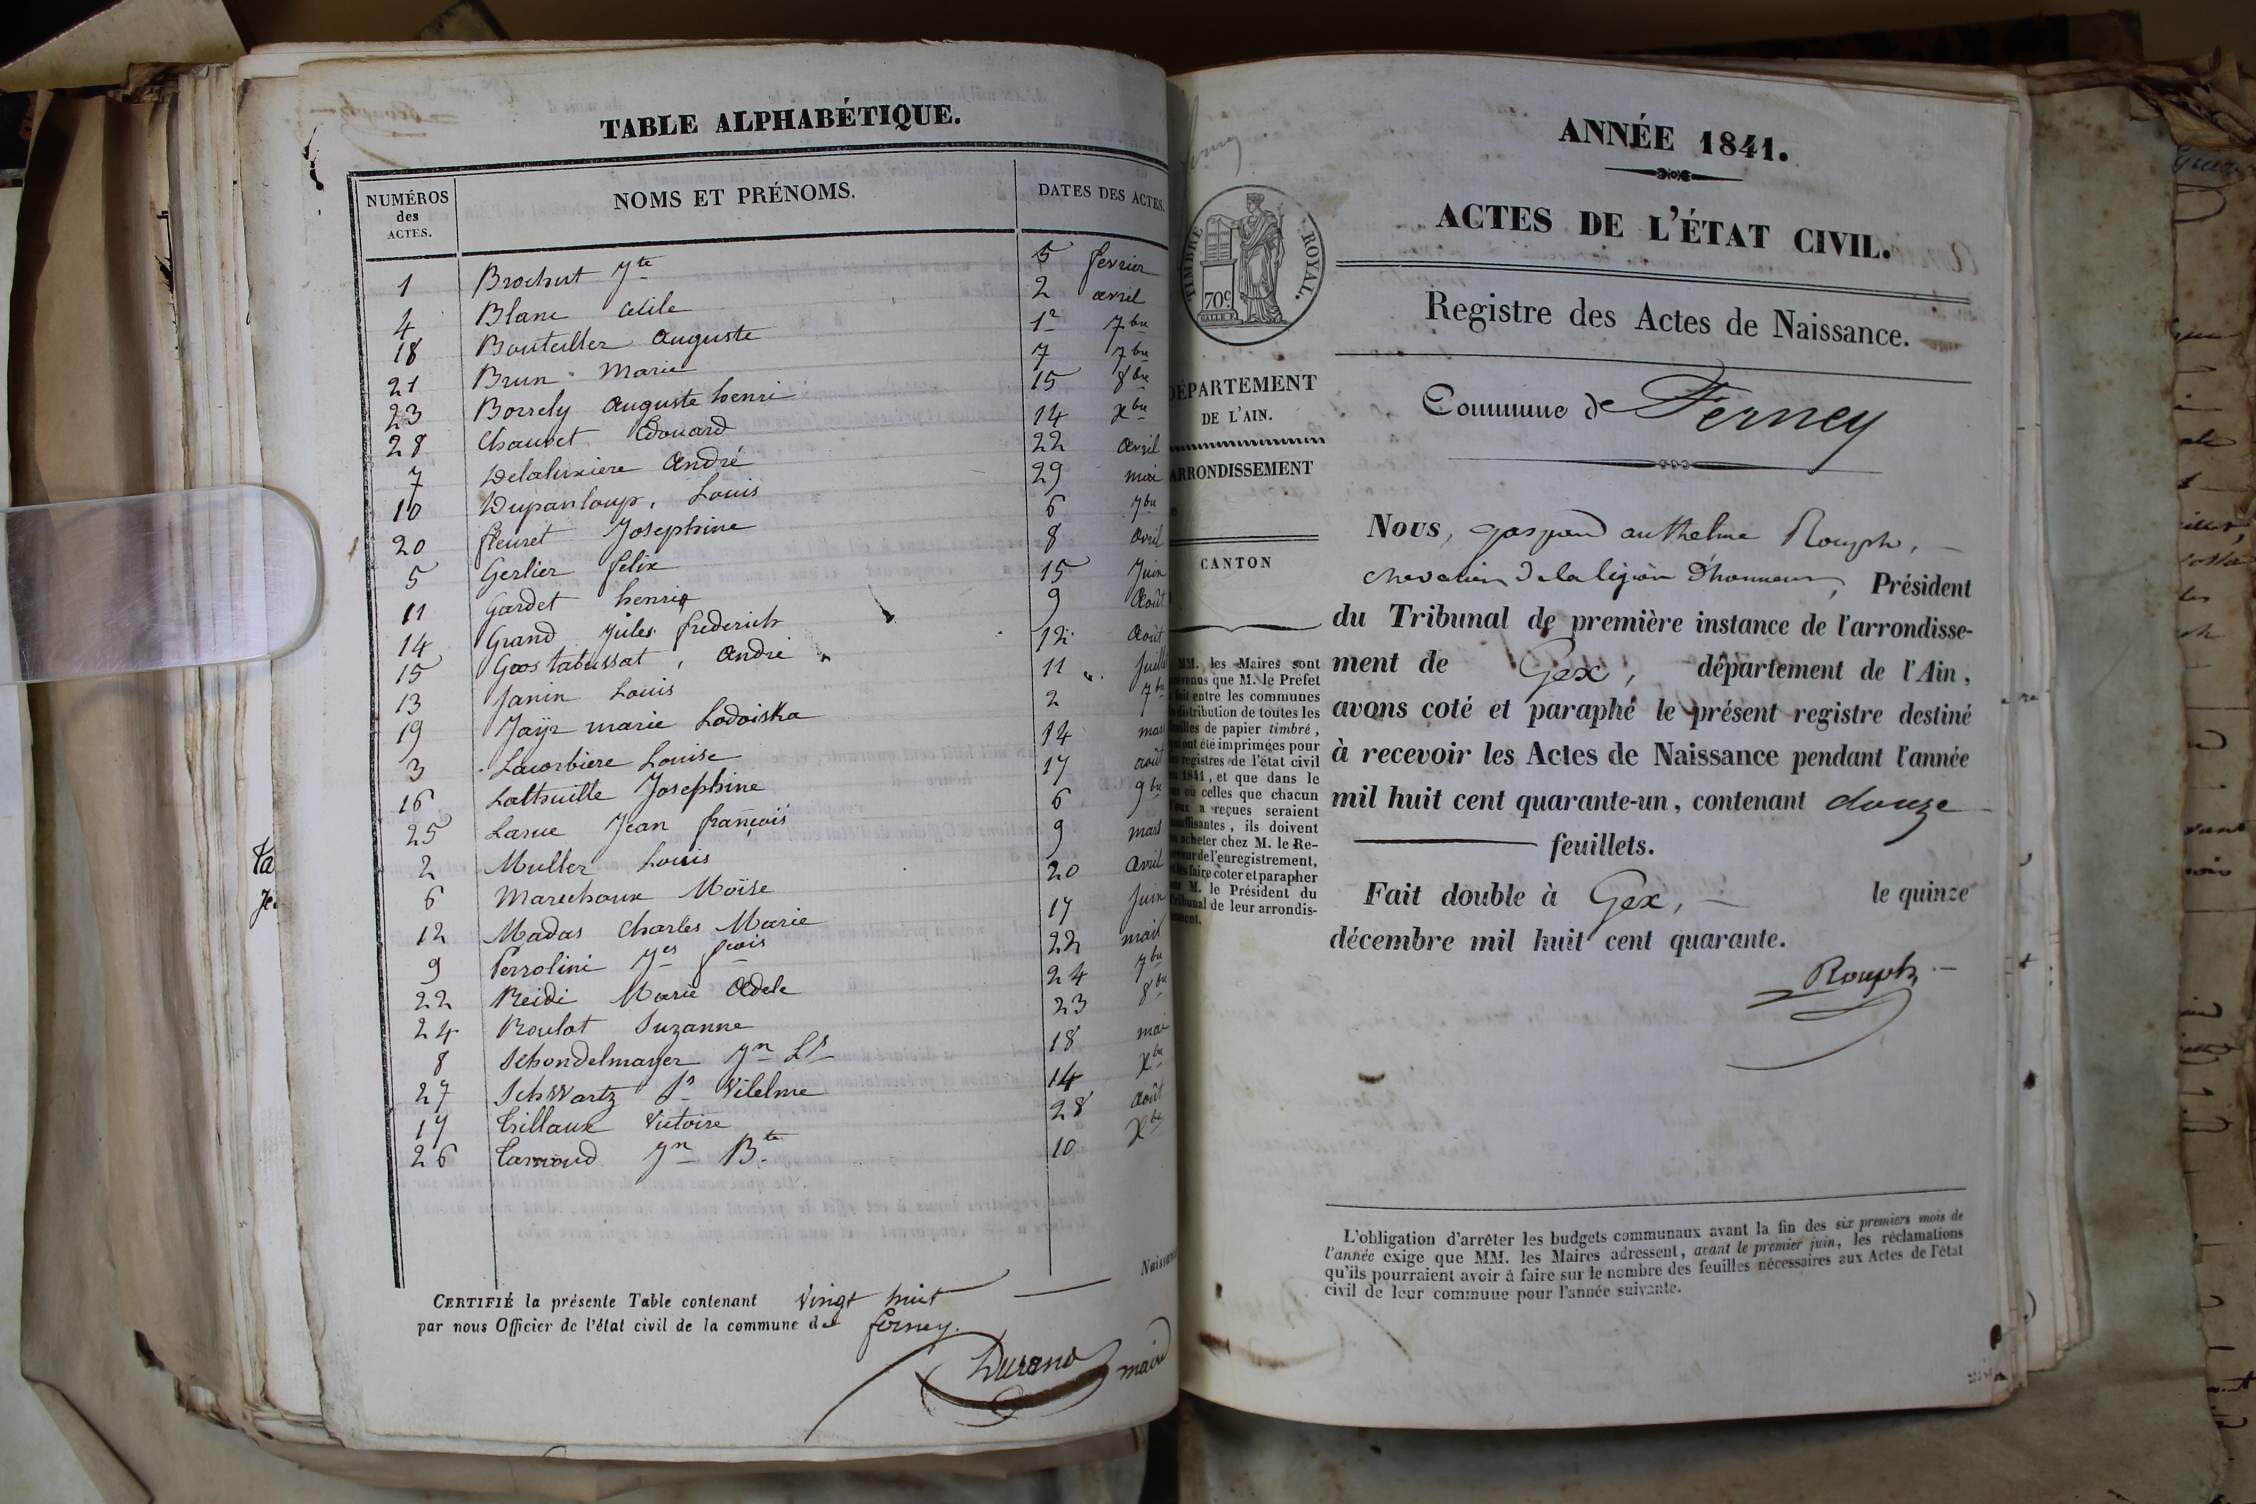 TABLE ALPHABÉTIQUE.
NUMÉROS des ACTES. NOMS ET PRÉNOMS. DATES DES ACTES.
1 Brochut Jte 5 fevrier
4 Blanc 2 avril
18 Bouteiller Auguste 1r 7bre
21 Brun Marie 7 7bre
23 Borrely auguste henri 15 8bre
28 Chauvet Edouard 14 Xbre
7 André 22 avril
10 Dupanloup, Louis 29 mai
20 fleuret Josephine 6 7bre
5 Gerlier felix 8 avril
11 Gardet henri 15 Juin
14 Grand Jules frederich 9 Août
15 Goostabussat, André 12 Août
13 Janin Louis 11 Juill
19 Jaÿr marie Lodoiska 2 7b
3 Lacorbiere Louise 14 mar
16 Lathuille Josephine 17 août
25 Larue Jean françois 6 9bre
2 Muller Louis 9 mars
6 Marechaux Moïse 20 avril
12 Madas Charles Marie 17 Juin
9 Perrolini Jes fçois 22 mai
22 Reidi Marie Adele 24 7bre
24 Roulot Suzanne 23 8bre
8 Schondelmayer Jn Ls 18 mai
27 Schwartz Vilelme 14 Xbre
17 Trillaux Victoire 28 août
26 Jn Bte 10 Xbre
CERTIFIÉ la présente Table contenant vingt huit Naissan
par nous Officier de l'état civil de la commune de ferney.
Durand maire
ANNÉE 1841.
ACTES DE L'ÉTAT CIVIL.
Registre des Actes de Naissance.
Commune de Ferney
TIMBRE ROYAL.
70c
DÉPARTEMENT
DE L'AIN.
ARRONDISSEMENT
CANTON
MM. les Maires sont
que M. le Préfet
entre les communes
distribution de toutes les
de papier timbré,
ont été imprimées pour
registres de l'état civil
1841, et que dans le
où celles que chacun
a reçues seraient
, ils doivent
acheter chez M. le Re-
de l'enregistrement,
faire coter et parapher
M. le Président du
de leur arrondis-
Nous, gaspard anthelme Rouph,
chevalier de la légion d'honneur, Président
du Tribunal de première instance de l'arrondisse-
ment de Gex, département de l'Ain,
avons coté et paraphé le présent registre destiné
à recevoir les Actes de Naissance pendant l'année
mil huit cent quarante-un, contenant douze
feuillets.
Fait double à Gex, le quinze
décembre mil huit cent quarante.
Rouph
L'obligation d'arrêter les budgets communaux avant la fin des six premiers mois de
l'année exige que MM. les Maires adressent, avant le premier juin, les réclamations
qu'ils pourraient avoir à faire sur le nombre des feuilles nécessaires aux Actes de l'état
civil de leur commune pour l'année suivante.